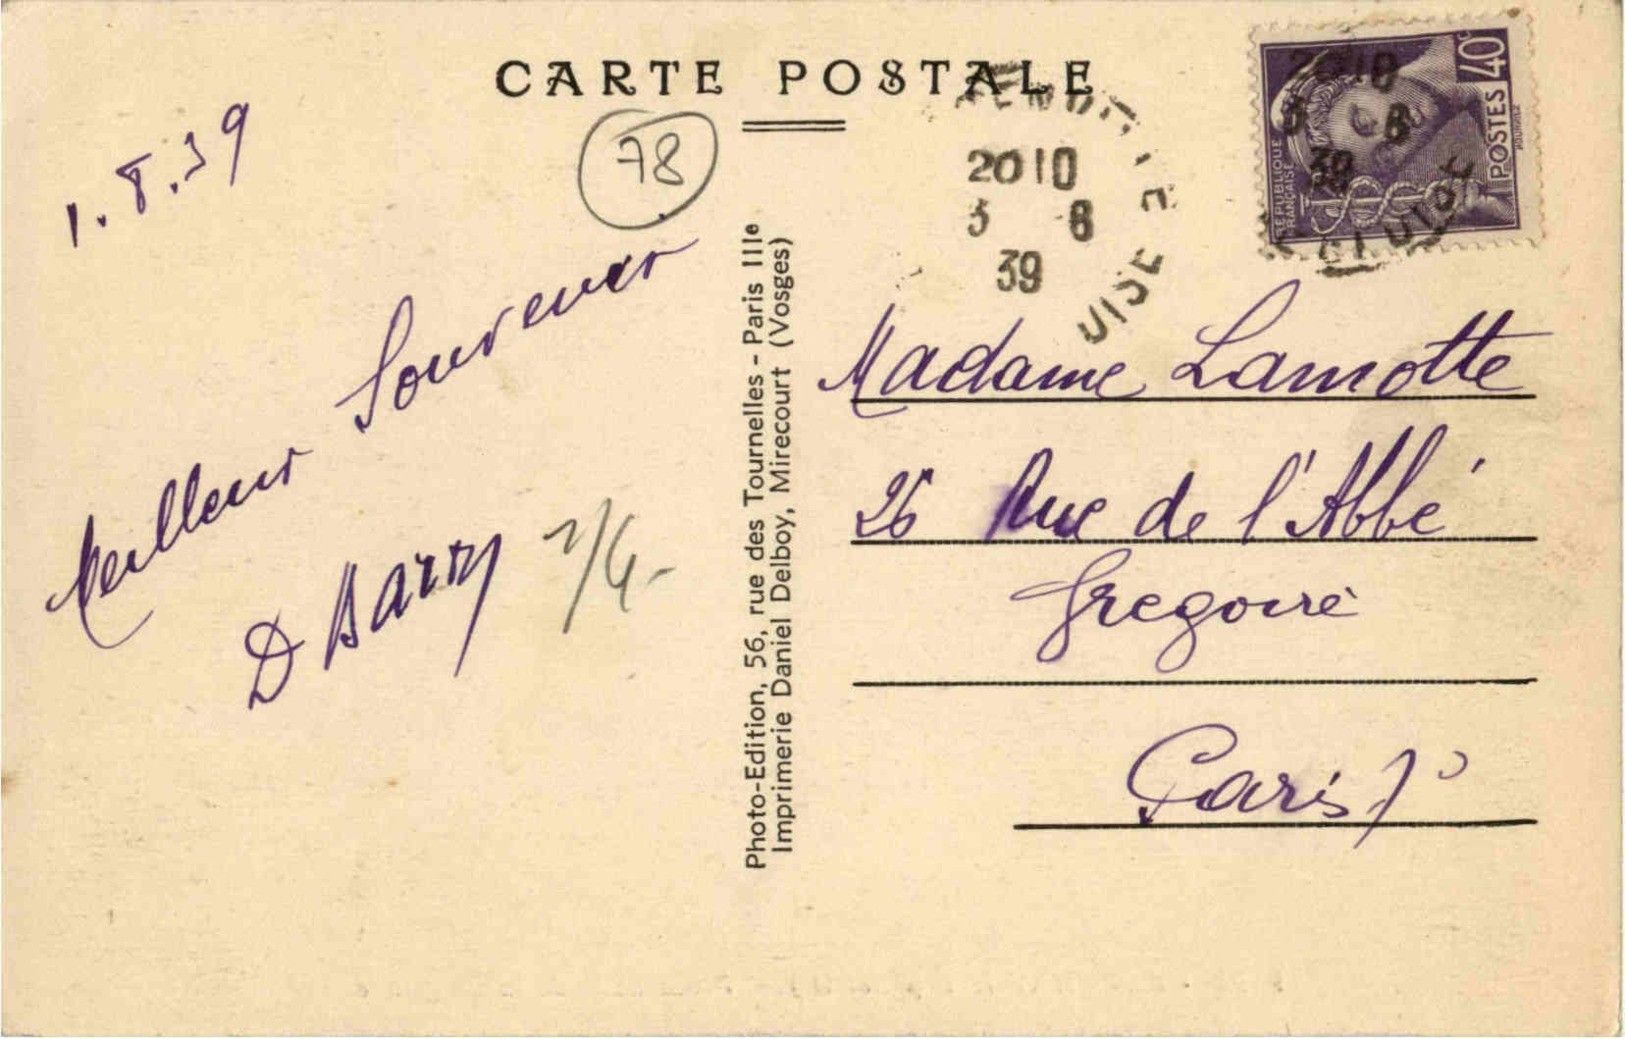 CARTE POSTALE
1.8.39
78
Meilleur Souvenir
D Barry
Photo-Edition, 56, rue des Tournelles - Paris IIIe
Imprimerie Daniel Delboy, Mirecourt (Vosges)
2010
8
39
UISE
2010
8
39
POSTES 40c
REPUBLIQUE
FRANÇAISE
Madame Lamotte
26 Rue de l'Abbé
Gregoire
Paris